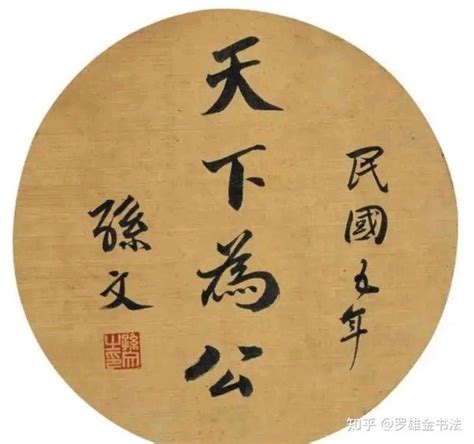 民國五年
天下為公
孫文
孫文之印
知乎 @罗雄金书法